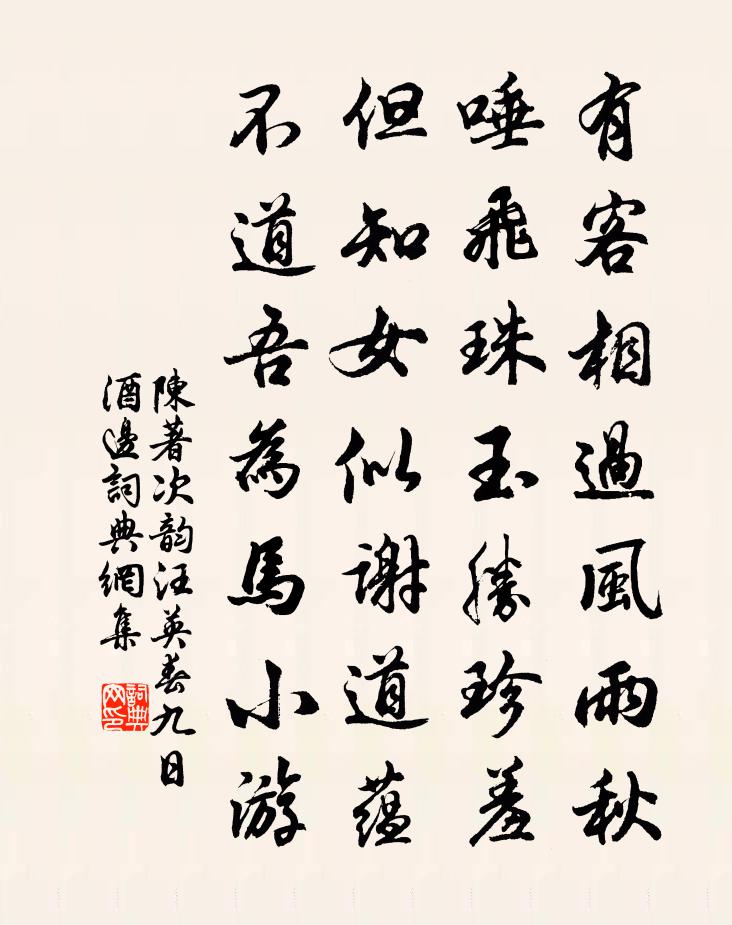 有客相過風雨秋
唾飛珠玉勝珍羞
但知女似謝道蘊
不道吾為馬小游
陳著次韵汪英春九日
酒邊詞典網集
詞典网印